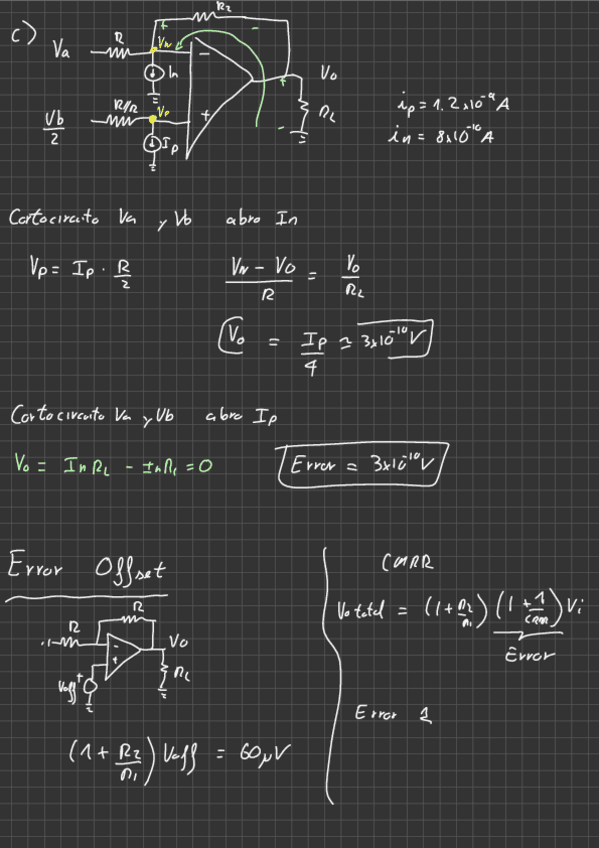 c)
R2
R
Va
VN
In
−
Vo
+
RL
R/R
Vb/2
Vp
Ip
+
ip = 1,2x10^-9 A
in = 8x10^-10 A
Cortocircuito Va y Vb abro In
Vp = Ip · R/2
(VN − VO)/R = Vo/RL
Vo = Ip/4 ≃ 3x10^-10 V
Cortocircuito Va y Vb abro Ip
Vo = In RL − InRL = 0
Error = 3x10^-10 V
Error Offset
R
R
−
+
VO
RL
Voff
(1 + R2/R1) Voff = 60μV
CMRR
Vo total = (1 + R2/R1) (1 + 1/CMRR) Vi
Error
Error 1